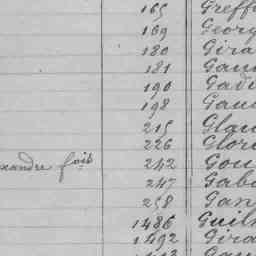 165 Greff
169 Georg
180 Gira
181 Gau
190 Gadi
198 Gau
215 Glau
226 Glor
xandre fois 242 Gou
247 Gab
258 Gan
1486 Guil
1492 Gira